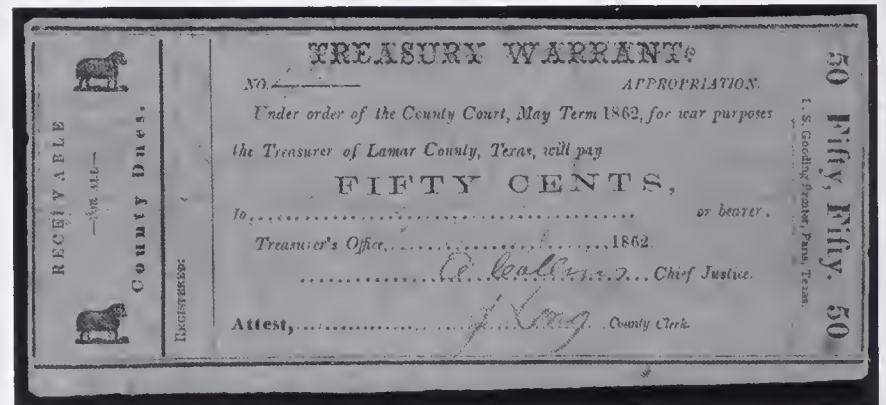 RECEIVABLE
—FOR ALL—
County Dues.
REGISTERED:
TREASURY WARRANT:
NO.
APPROPRIATION.
Under order of the County Court, May Term 1862, for war purposes
the Treasurer of Lamar County, Texas, will pay
FIFTY CENTS,
To, or bearer.
Treasurer's Office, 1862.
A Collems Chief Justice.
Attest, J Long County Clerk.
I. S. Gooding Printer, Paris, Texas.
50 Fifty, Fifty. 50